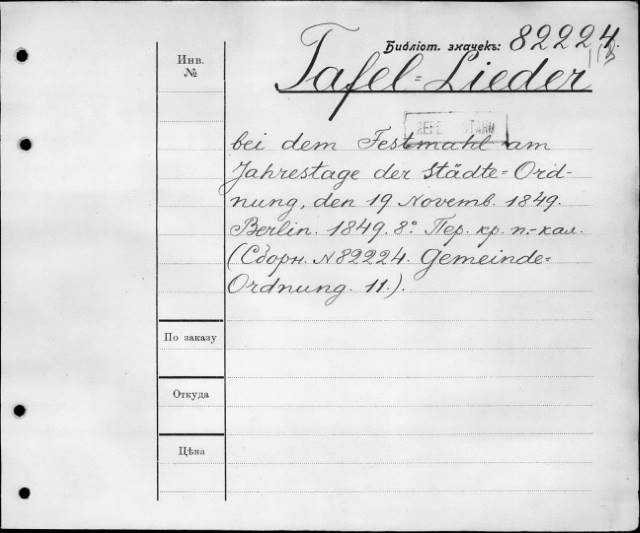 Инв. №
Библіот. значекъ: 82224.
Tafel=Lieder
bei dem Festmahl am
Jahrestage der Städte=Ord-
nung, den 19 Novemb. 1849.
Berlin. 1849. 8° Пер. кр. п.-кал.
(Сборн. №82224. Gemeinde=
Ordnung. 11.).
По заказу
Откуда
Цѣна